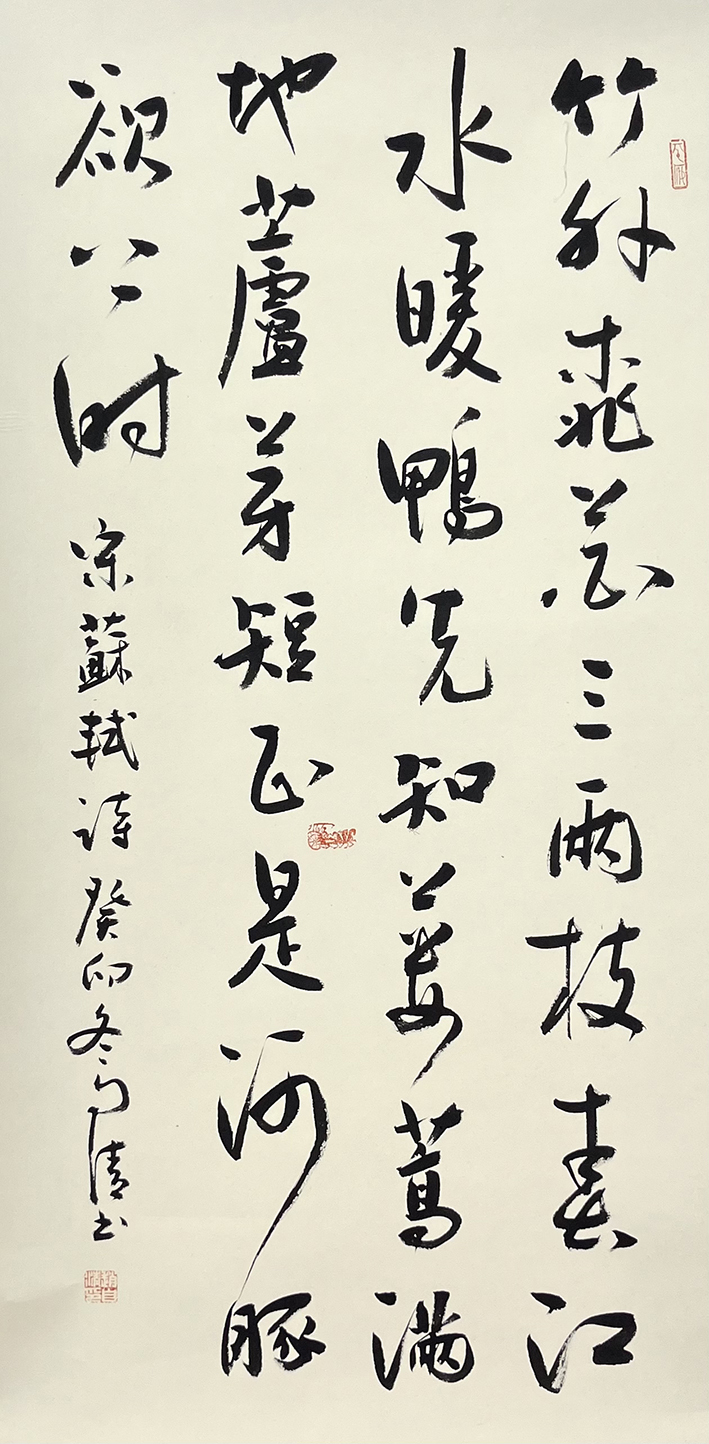 竹外桃花三兩枝春江
水暖鴨先知蔞蒿滿
地蘆芽短正是河豚
欲上时 宋蘇軾詩癸卯冬清书